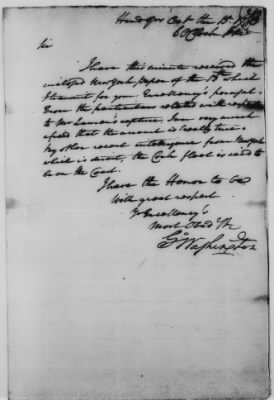 Head Qrs Octr the 15th
6 OClock
Sir
I have this minute received the
inclosed New York paper of the 13th which
I transmit for your Excellency's perusal.
From the particulars related with respect
to Mr Laurens's capture I am very much
afraid that the account is really true.
My other recent intelligence from New York
which is direct, the Cork fleet is said to
be on the Coast.
I have the Honor to be
with great respect
Yr Excellency's
most Obedt
Go Washington